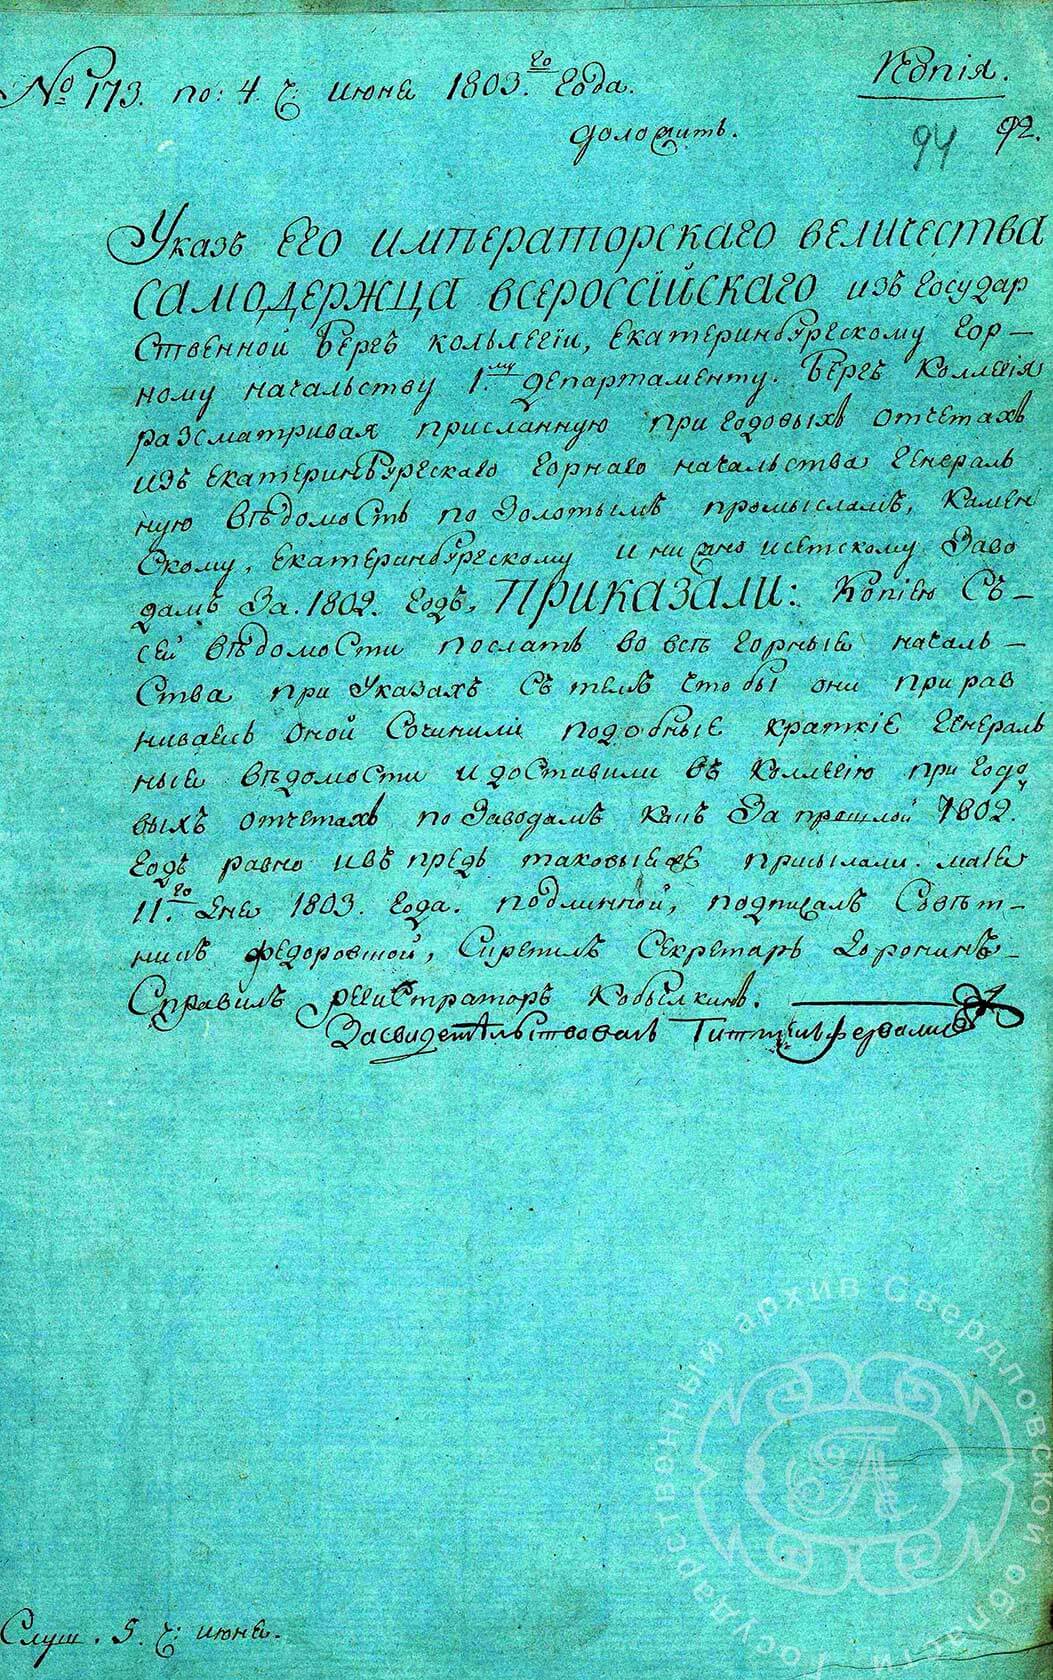 № 173. по: 4. ч: июня 1803.го Года.
Копія.
доложить.
94 92.
Указъ Его императорскаго величества
самодержца всероссійскаго изъ Государ
ственной Бергъ коллегіи, Екатеринбургскому Гор–
ному начальству 1.му Департаменту. Бергъ Коллегія
разсматривая присланную при Годовыхъ отчетахъ
изъ Екатеринбургскаго Горнаго начальства Генераль
ную вѣдомость по Золотымъ промысламъ, Камен
скому, Екатеринбургскому и нижно исетскому Заво
дамъ За 1802. Годъ, Приказали: Копію Съ–
сей вѣдомости послать во всѣ Горные началь–
ства при Указахъ Съ темъ что бы они прирав
ниваясь оной Сочинили подобные краткіе Генераль
ные вѣдомости и доставили въ Коллегію при Годо
выхъ отчетахъ по Заводамъ какъ За прошлой 1802.
Годъ равно и въ предь таковые же присылали. маія
11.го Дня 1803. Года. подлинной, подписалъ Совѣт–
никъ Федоровской, Скрепилъ Секретарь Воронинъ–
Справилъ регистраторъ Кобылкинъ.
Засвидетельствовалъ
Слуш. 5. ч: июня.
Государственный архив Свердловской области